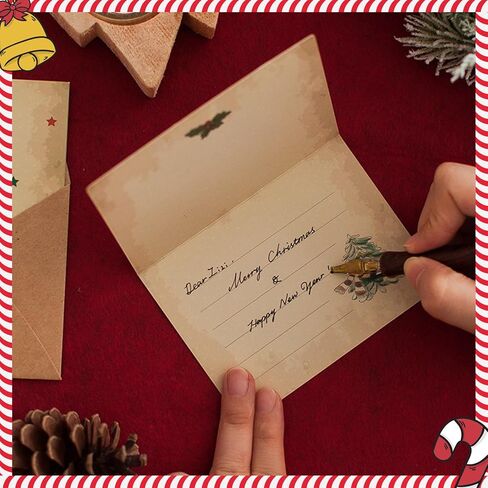 Dear Lizi,
Merry Christmas
&
Happy New Year